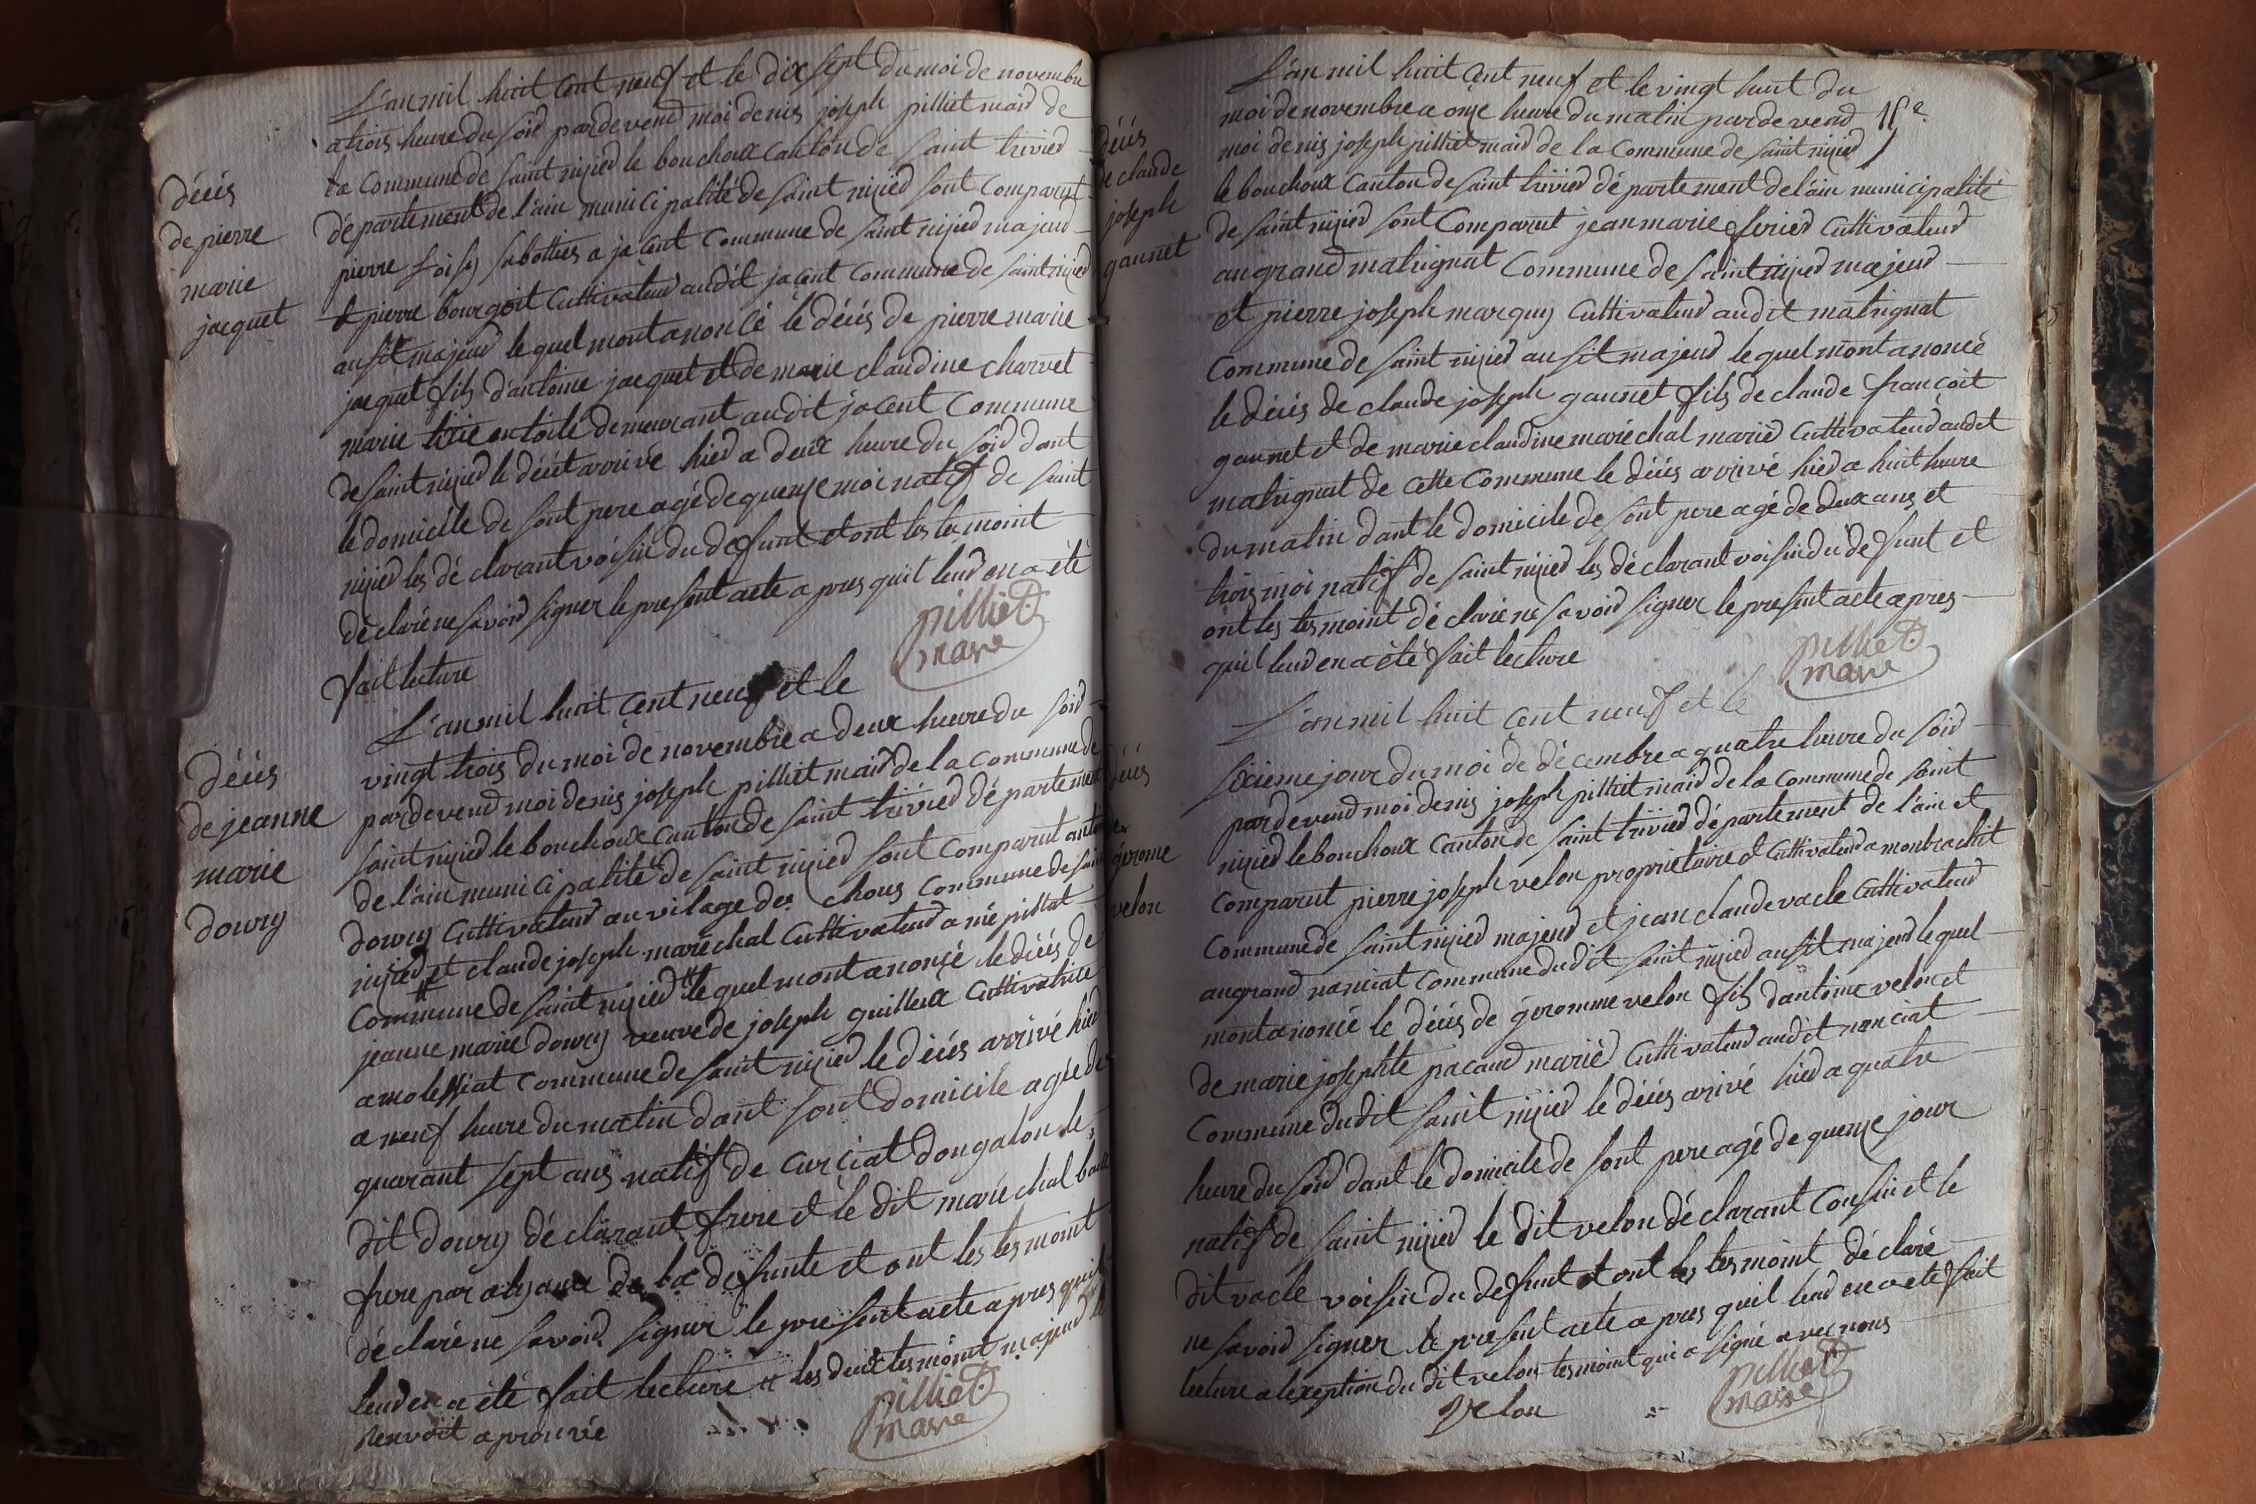 décés
de pierre
marie
jacquet
L'an mil huit cent neuf et le dix sept du moi de novembre
a trois heure du soir pardevend moi denis joseph pilliet maid de
la commune de saint nizied le bouchoux canton de saint trivied
département de l'ain municipalité de saint nizied sont comparut
pierre sabottier a jacent commune de saint nizied majeur
et pierre bourgoit cultivateur audit jacent commune de saint nizied
ausit majeur lequel mont anoncé le décés de pierre marie
jacquet fils d'antoine jacquet et de marie claudine charvet
marie en toile demeurant audit jacent commune
de saint nizied le décét arrivé hied a deux heure du soid dant
le domicile de sont pere agé de quenze moi natif de saint
nizied les déclarant voisin du defunt et ont les tesmoint
déclaré ne savoid signer le present acte a pres quit leud en a été
fait lecture
pilliet
mare
décés
de jeanne
marie
doury
L'an mil huit cent neuf et le
vingt trois du moi de novembre a deux heure du soid
pardevend moi denis joseph pilliet maid de la commune de
saint nizied le bouchoux canton de saint trivied département
de l'ain municipalité de saint nizied sont comparut antoine
doury cultivateur au vilage des chous commune de saint
nizied et claude joseph maréchal cultivateur a mépillat
commune de saint nizied # lequel mont anonçé le décés de
jeanne marie doury veuve de joseph guilleux cultivatrice
a molessiat commune de saint nizied le décés arrivé hied
a neuf heure du matin dant sont domicile agée de
quarant sept ans natif de curciat dongalon le
dit doury déclarant frere et le dit maréchal beau
frere par alyance de la defunte et ont les tesmoint
déclaré ne savoid signer le present acte a pres quil
leud en a été fait lecture # les deux tesmoint majeur
renvoit aprouvée
pilliet
mare
décés
de claude
joseph
gaunet
L'an mil huit cent neuf et le vingt huit du
moi de novembre a onze heure du matin pardevend
moi denis joseph pilliet maid de la commune de saint nizied
le bouchoux canton de saint trivied département de l'ain municipalité
de saint nizied sont comparut jean marie ferier cultivateur
au grand matrignat commune de saint nizied majeur
et pierre joseph marquis cultivateur audit matrignat
commune de saint nizied ausit majeur lequel mont anoncé
le décés de claude joseph gaunet fils de claude françoit
gaunet et de marie claudine maréchal maried cultivateur audit
matrignat de cette commune le décés arrivé hied a huit heure
du matin dant le domicile de sont pere agé de deux ans et
trois moi natif de saint nizied les déclarant voisin du defunt et
ont les tesmoint déclaré ne savoid signer le present acte apres
quil leud en a été fait lecture
pilliet
mare
décés
gerome
velon
L'an mil huit cent neuf et le
sixieme jour du moi de décembre a quatre heure du soid
pardevend moi denis joseph pilliet maid de la commune de saint
nizied le bouchoux canton de saint trivied département de l'ain et
comparut pierre joseph velon proprietaire et cultivateur a montrachit
commune de saint nizied majeur et jean claude vacle cultivateur
au grand nanciat commune dudit saint nizied ausit majeur lequel
mont anoncé le décés de geromme velon fils d'antoine velon et
de marie josephte pacaud maried cultivateur audit nanciat
commune dudit saint nizied le décés arivé hied a quatre
heure du soid dant le domicile de sont pere agé de quenze jour
natif de saint nizied le dit velon déclarant cousin et le
dit vacle voisin du defunt et ont les tesmoint déclaré
ne savoid signer le present acte a pres quil leud en a été fait
lecture a lexeption du dit velon tesmoint qui a signé avec nous
velon
pilliet
mare